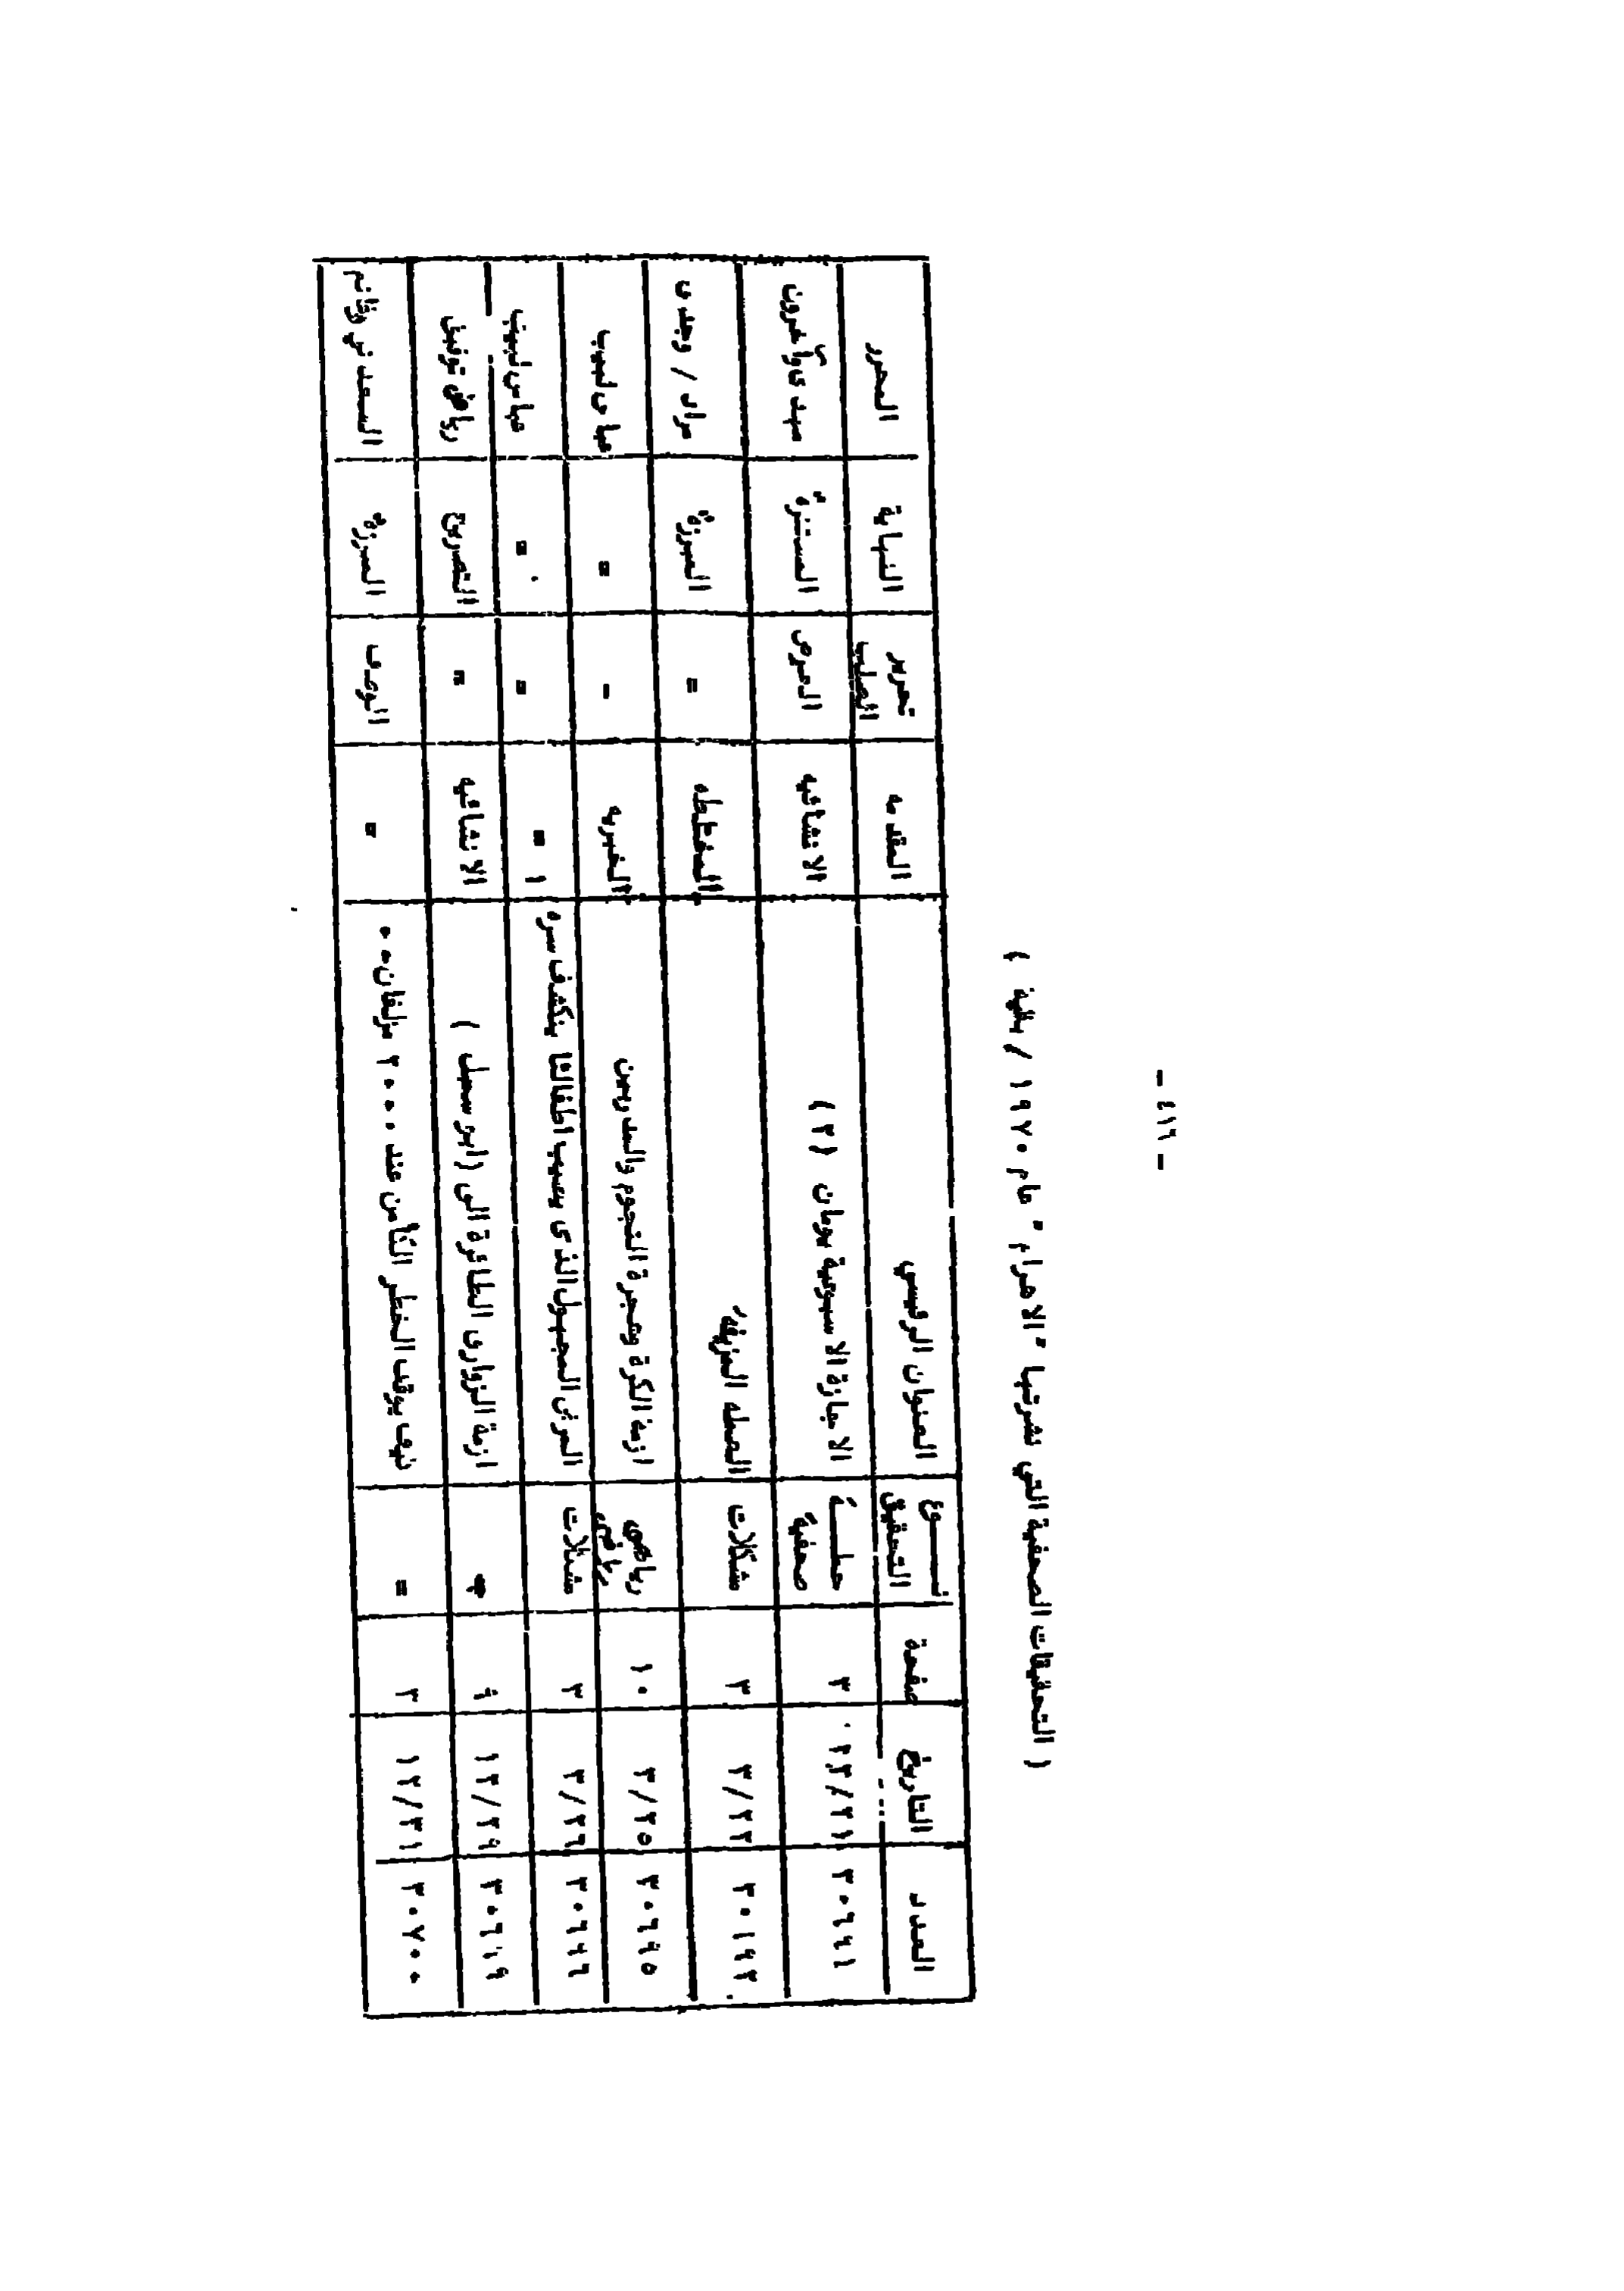 - ٤١٦ -
( التحقيقات الصحفية التي نشرتها " الاهرام " عام ١٩٧٠ / بقية )
العدد التاريخ صفحة نـــوع التحقيق العنوان الرئيسي المقدمه تحرير الصلب النهاية المحرر
٣٠٦٤١ ٣ حملـــة صحفية الاجازة الاسبوعية يومان (٢) الانشائيه العرض المستنزة وآخرون
٣/٢٣ ٣ مشكلات المحطه المزيفه المخططه = المبرزة مراد / وجدى
٣٠٦٤٥ ٣/٢٥ ١٠ رياضى ازمة الكرة وشجرة النجوم والمدربين الخبريه - = عباس لبيب
٣٠٦٤٦ ٣/٢٦ ٣ مشكلات المرض المجهول الذى يصيب اطفالنا ينكشف سره = = = عباس لبيب
١٢/٢٩ ازمة الزوارى الطائرة الى (ابو سمبل ) الانشائيه = التصريح رياض توفيق
٣٠٧٠٠ ١٢/٣١ ٣ = يوقف الخطر الثامن عند ٢٠٠٠ مزلقان ٠٠ = الوصف المبرزة